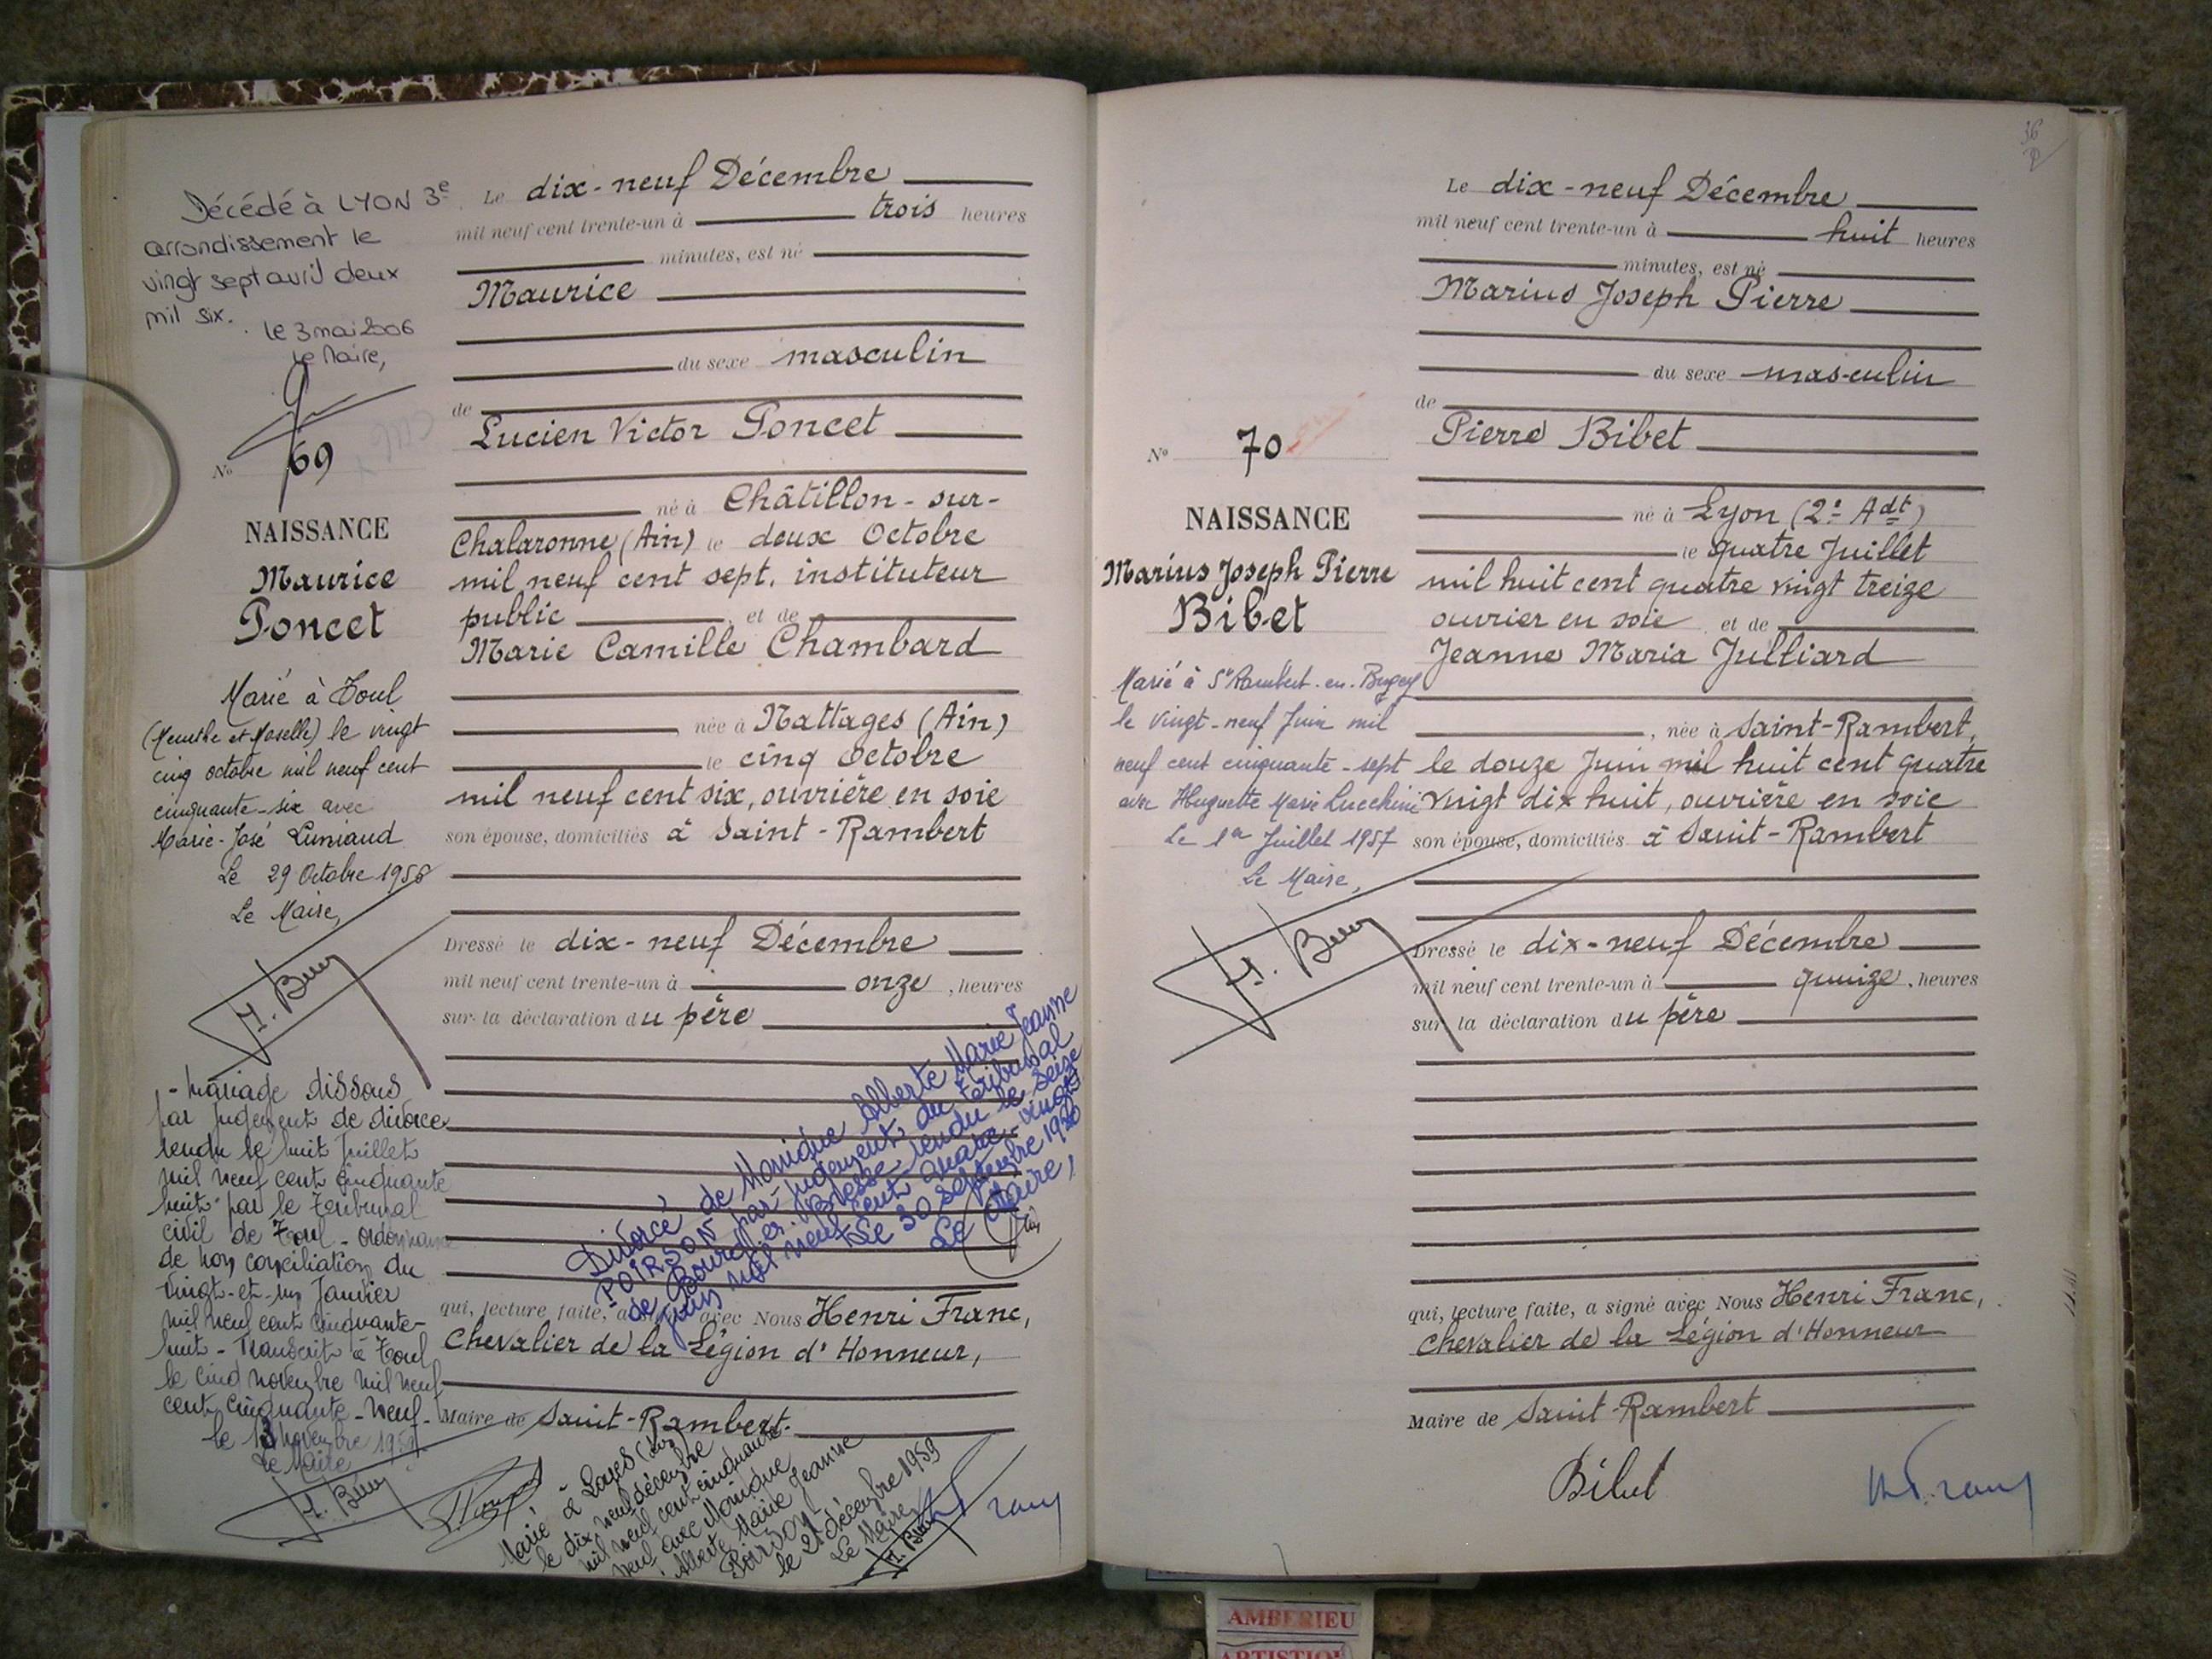 Décédé à LYON 3e
arrondissement le
vingt sept avril deux
mil six.
le 3 mai 2006
Le Maire,
No 69
NAISSANCE
Maurice
Poncet
Marié à Toul
(Meurthe et Moselle) le vingt
cinq octobre mil neuf cent
cinquante-six avec
Marie-José
Le 29 Octobre 1956
Le Maire,
- Mariage dissous
par jugement de divorce
rendu le huit Juillet
mil neuf cent cinquante
huit par le Tribunal
civil de Toul - Ordonnance
de non conciliation du
vingt-et-un Janvier
mil neuf cent cinquante-
huit - Transcrit à Toul
le cinq novembre mil neuf
cent cinquante-neuf-
le 13 novembre 1959
Le Maire
Le dix-neuf Décembre
mil neuf cent trente-un à trois heures
minutes, est né
Maurice
du sexe masculin
de
Lucien Victor Poncet
né à Châtillon-sur-
Chalaronne (Ain) le deux Octobre
mil neuf cent sept, instituteur
public et de
Marie Camille Chambard
née à Nattages (Ain)
le cinq Octobre
mil neuf cent six, ouvrière en soie
son épouse, domiciliés à Saint-Rambert
Dressé le dix-neuf Décembre
mil neuf cent trente-un à onze, heures
sur la déclaration du père
Divorcé de Monique Alberte Marie Jeanne
POIRSON par jugement du tribunal
de Bourg en Bresse rendu le seize
juin mil neuf cent quatre-vingts
Le 30 septembre 1980
Le Maire,
qui, lecture faite, a signé avec Nous Henri Franc,
Chevalier de la Légion d'Honneur,
Maire de Saint-Rambert.
Marié à Layes
le dix neuf décembre
mil neuf cent cinquante
neuf avec Monique
Alberte Marie Jeanne
Poirson
le 21 décembre 1959
Le Maire
No 70
NAISSANCE
Marius Joseph Pierre
Bibet
Marié à St Rambert-en-Bugey
le vingt-neuf Juin mil
neuf cent cinquante-sept
avec Huguette Marie Lucchini
Le 1er Juillet 1957
Le Maire,
Le dix-neuf Décembre
mil neuf cent trente-un à huit heures
minutes, est né
Marius Joseph Pierre
du sexe masculin
de
Pierre Bibet
né à Lyon (2e Adt)
le quatre Juillet
mil huit cent quatre vingt treize
ouvrier en soie et de
Jeanne Maria Julliard
, née à Saint-Rambert,
le douze Juin mil huit cent quatre
vingt dix huit, ouvrière en soie
son épouse, domiciliés à Saint-Rambert
Dressé le dix-neuf Décembre
mil neuf cent trente-un à quinze, heures
sur la déclaration du père
qui, lecture faite, a signé avec Nous Henri Franc,
Chevalier de la Légion d'Honneur
Maire de Saint-Rambert
Bibet
AMBERIEU